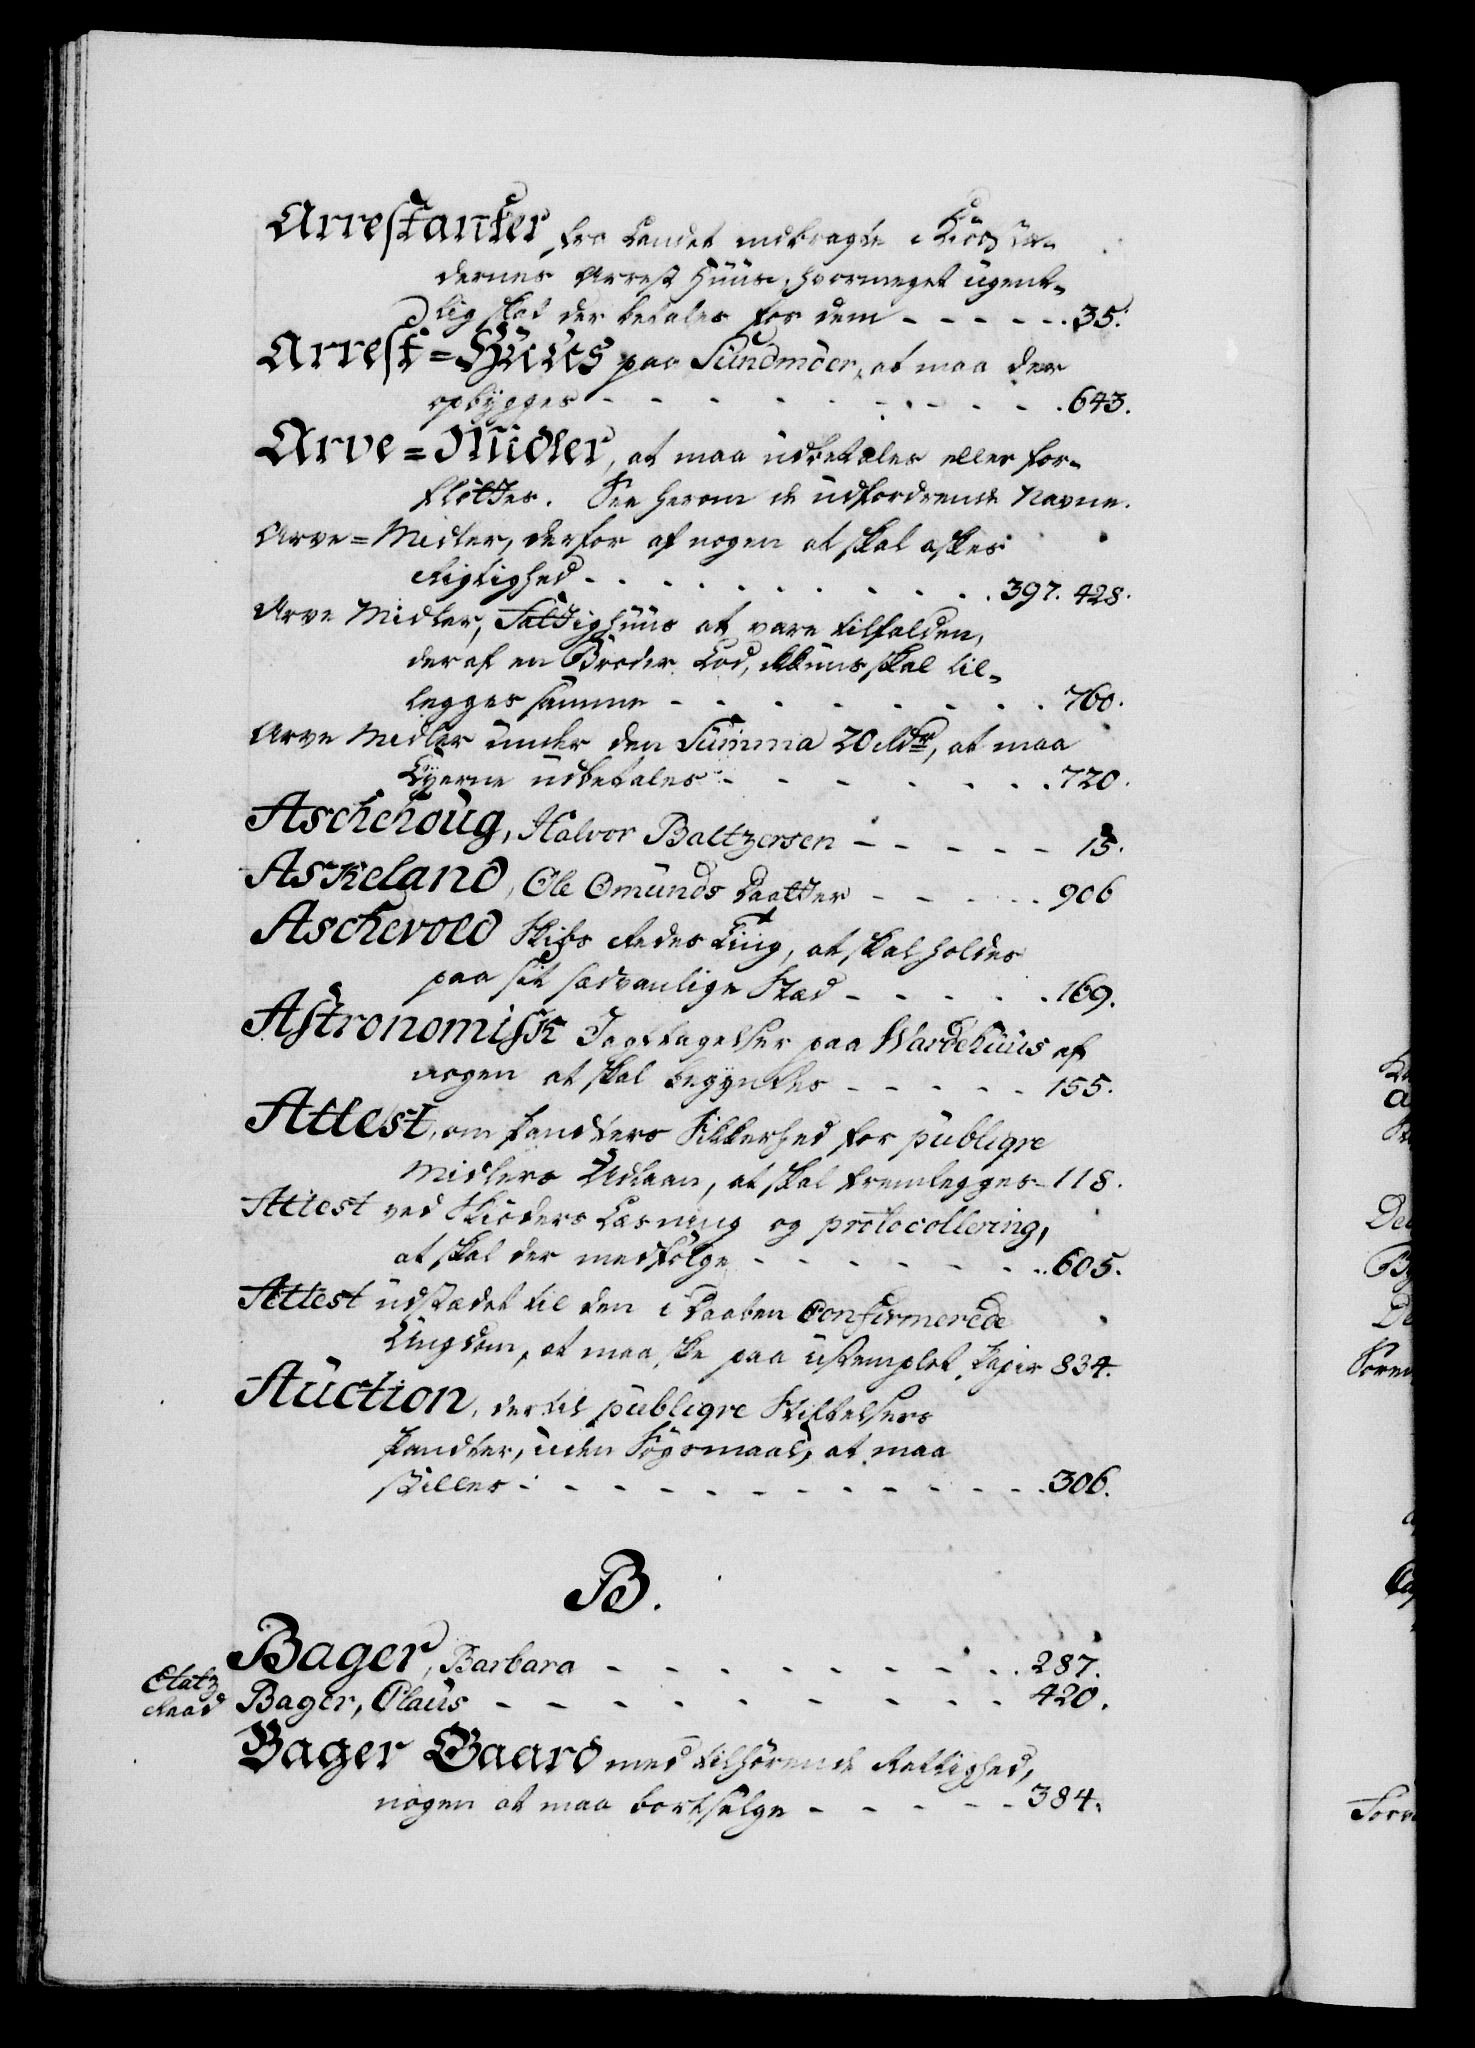 Arrestanter, fra Landet indbragte i Kiöbstæ-
dernes Arrest Huuse, hvormeget ugent-
lig skal der betales for dem - - - - - . 35.
Arrest=Huus paa Sundmöer, at maa der
opbygges - - - - - - - - - . 643.
Arve=Midler, at maa udbetales eller for-
flöttes. See herom de udfordrende Navne.
Arve=Midler, derfor af nogen at skal askes
Rigtighed - - - - - - - - . 397. 428.
Arve Midler, Fattighuus at være tilfalden,
deraf en Broder Lod, ikkuns skal til-
legges samme - - - - - - - . 760.
Arve Midler under den Summa 20 Rdr, at maa
Eyerne udbetales - - - - - - . 720.
Aschehoug, Halvor Baltzersen - - - - - 15.
Askeland, Ole Omunds Daatter - - - - . 906
Aschevold Skibs Redes Ting, at skal holdes
paa sit sædvanlige Stæd - - - - . 169.
Astronomisk Iagttagelser paa Wardehuus af
nogen at skal begyndes - - - - - 155.
Attest, om Pandters Sikkerhed for publiqve
Midlers Udlaan, at skal fremlegges - 118.
Attest ved Skiöders Læsning og protocollering,
at skal der medfölge - - - - - - . 605.
Attest udstædet til den i Daaben Confirmerede
Ungdom, at maa ske paa ustemplet Papir 834.
Auction, dertil publiqve Stiftelsers
Pandter, uden Sögsmaal, at maa
stilles - - - - - - - - - - . 306.
B.
Bager, Barbara - - - - - - - - . 287.
Etatz
Raad Bager, Claus - - - - - - - - - 420.
Bager Gaard med tilhörende Rettighed,
nogen at maa bortselge - - - - - 384.